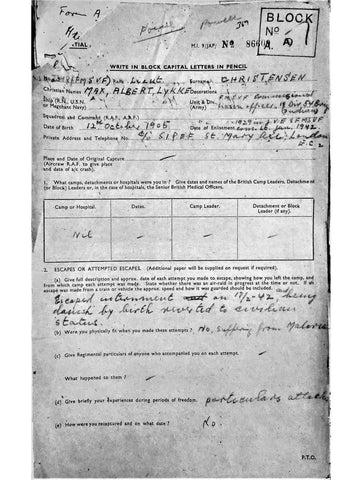 Form A
BLOCK
No
A
M.I. 9/JAP/ No
TIAL.
WRITE IN BLOCK CAPITAL LETTERS IN PENCIL
Rank Lieut Surname CHRISTENSEN
Christian Names MAX, ALBERT, LYKKE Decorations
Ship (R.N., U.S.N. or Merchant Navy) Unit & Div. (Army)
Squadron and Command (R.A.F. A.A.F.)
Date of Birth 12th October 1905 Date of Enlistment Jan. 1942
Private Address and Telephone No. c/o SIPEF St. Mary Axe, London
E.C. 2
Place and Date of Original Capture
(Aircrew R.A.F. to give place
and date of a/c crash).
1. What camps, detachments or hospitals were you in? Give dates and names of the British Camp Leaders, Detachment
(or Block) Leaders or, in the case of hospitals, the Senior British Medical Officers.
Camp or Hospital. Dates. Camp Leader. Detachment or Block
Leader (if any).
Nil - - -
2. ESCAPES OR ATTEMPTED ESCAPES. (Additional paper will be supplied on request if required).
(a) Give full description and approx. date of each attempt you made to escape, showing how you left the camp, and
from which camp each attempt was made. State whether there was an air-raid in progress at the time or not. If an
escape was made from a train or vehicle the approx. speed and how it was guarded should be included.
Escaped internment on 17/2-42, being
danish by birth reverted to civilian
status.
(b) Were you physically fit when you made these attempts? No, suffering from Malaria
(c) Give Regimental particulars of anyone who accompanied you on each attempt.
-
What happened to them? -
(d) Give briefly your experiences during periods of freedom. particulars attached
(e) How were you recaptured and on what date? No.
P.T.O.